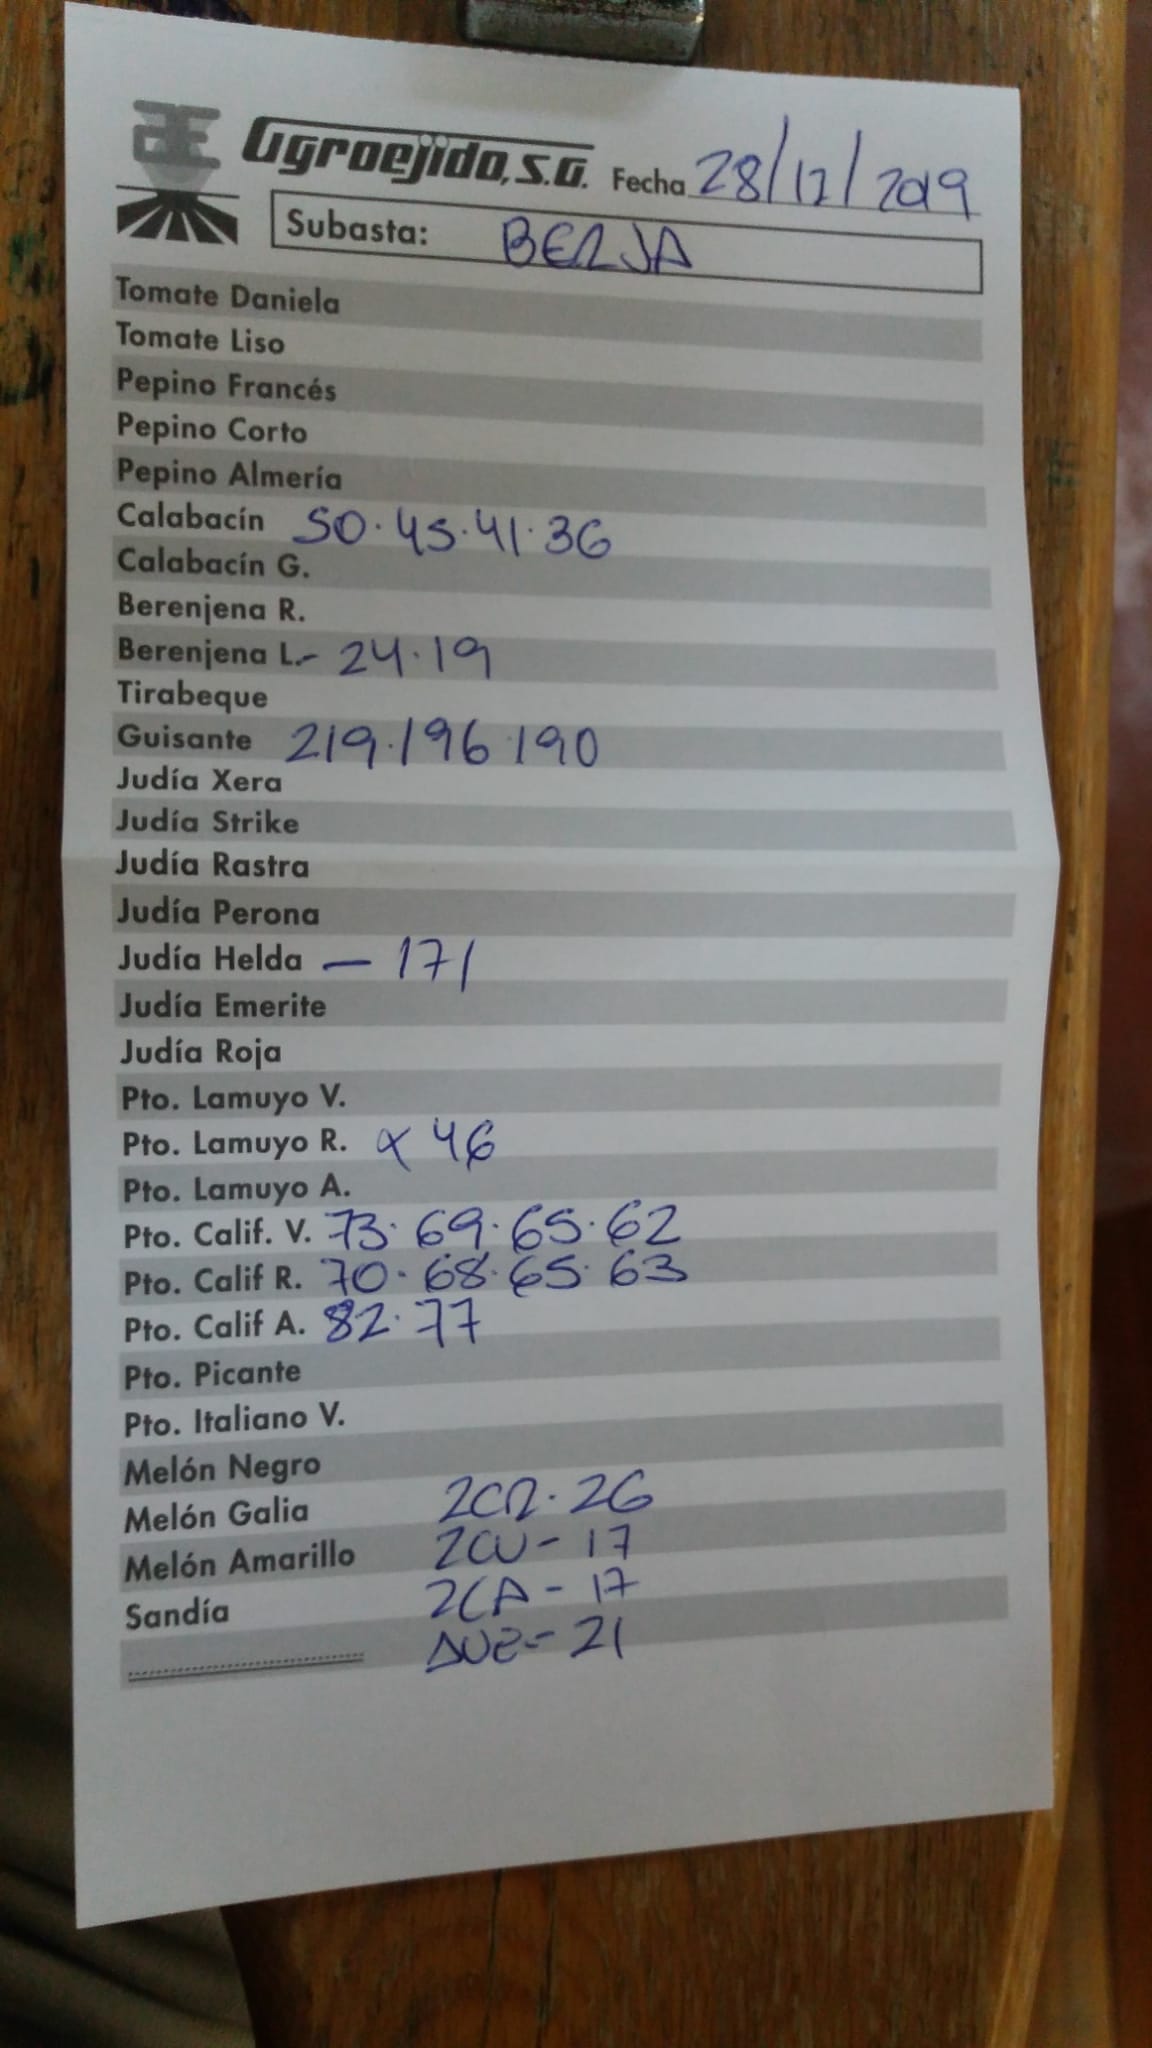 Agroejido, S.A. Fecha 28/12/2019
Subasta: BERJA
Tomate Daniela
Tomate Liso
Pepino Francés
Pepino Corto
Pepino Almería
Calabacín 50·45·41·36
Calabacín G.
Berenjena R.
Berenjena L.- 24·19
Tirabeque
Guisante 219·196·190
Judía Xera
Judía Strike
Judía Rastra
Judía Perona
Judía Helda — 171
Judía Emerite
Judía Roja
Pto. Lamuyo V.
Pto. Lamuyo R. x 46
Pto. Lamuyo A.
Pto. Calif. V. 73·69·65·62
Pto. Calif R. 70·68·65·63
Pto. Calif A. 82·77
Pto. Picante
Pto. Italiano V.
Melón Negro
Melón Galia 2CR·26
Melón Amarillo 2CV-17
Sandía 2CA-17
21